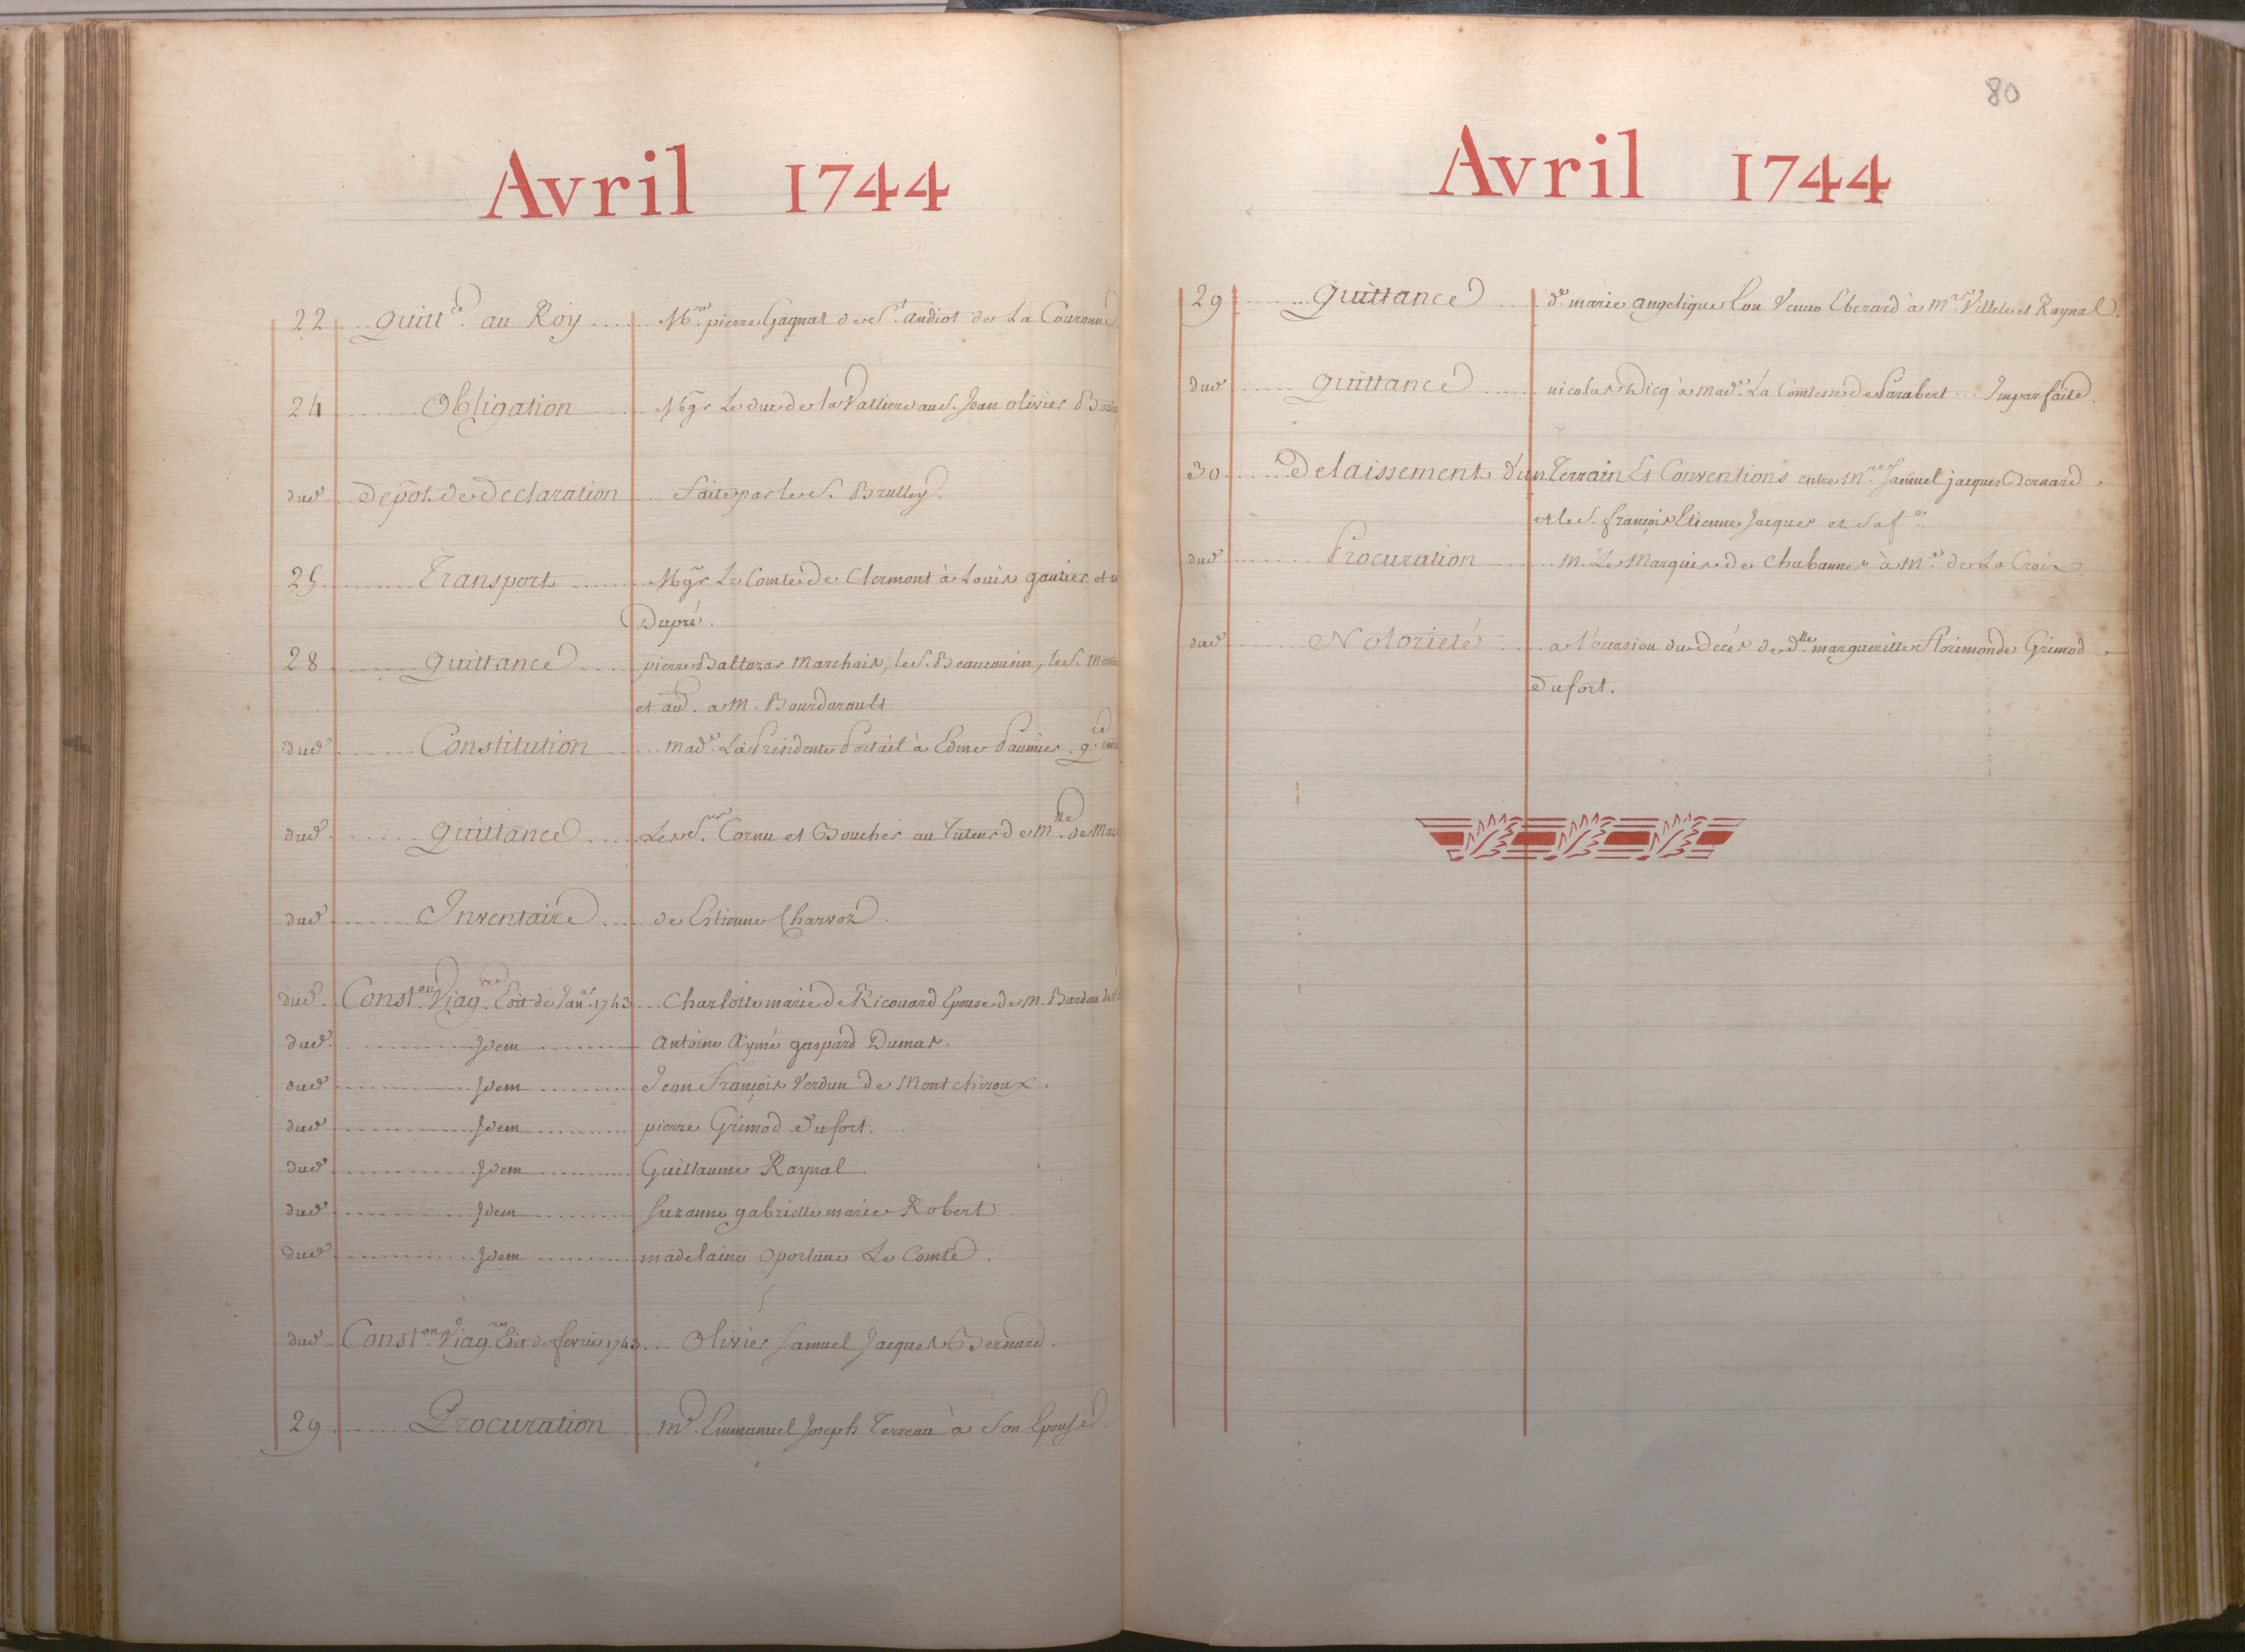 Avril 1744
22 quitt.ce au Roy Mre. pierre Gagnat de St. andiol de La Couronne
24 Obligation Mgr Le duc de la Valliere au S. Jean olivier
dud. depôt de declaration faite par le S. Brulley.
25 Transport Mgr Le Comte de Clermont à Louis gautier et
Dupré.
28 quittance pierre Baltazar Marchais, le S. Beaucousin, le S.
et au. a M. Bourdarault
dud. Constitution made. La Presidente Portail à Edme Paumier. q.ce
dud. quittance Les Srs. Cornu et Boucher au Tuteur de Mlle. de
dud. Inventaire de Estienne Charvoz.
dud. Const.on Viag.re Edit de Janer. 1743 Charlotte marie de Ricouard Epouse de M. Bardou
dud. Idem Antoine Aymé gaspard Dumas.
dud. Idem Jean François Verdun de Montchiroux.
dud. Idem pierre Grimod dufort.
dud. Idem Guillaume Raynal
dud. Idem Suzanne gabrielle marie Robert
dud. Idem madelaine oportune Le Comte.
dud. Const.on Viag.re Edit de fevrier 1743 Olivier Samuel Jacques Bernard.
29 Procuration Mr. Emmanuel Joseph Terreau à Son Epouse.
80
Avril 1744
29 quittance de. marie angelique Lou Veuve Eberard à Mrs. Villele et Raynal.
dud. quittance nicolas Dicq à made. La Comtesse de Parabert Imparfaite.
30 Delaissement d'un Terrain Et Conventions entre Mre. Samuel jacques Bernard
et le S. françois Etienne Jacques et Sa fe.
dud. Procuration M. Le Marquis de Chabannes à Me. de La Croix
dud. Notorieté a l'occasion du deces de dlle. margueritte florimonde Grimod
dufort.